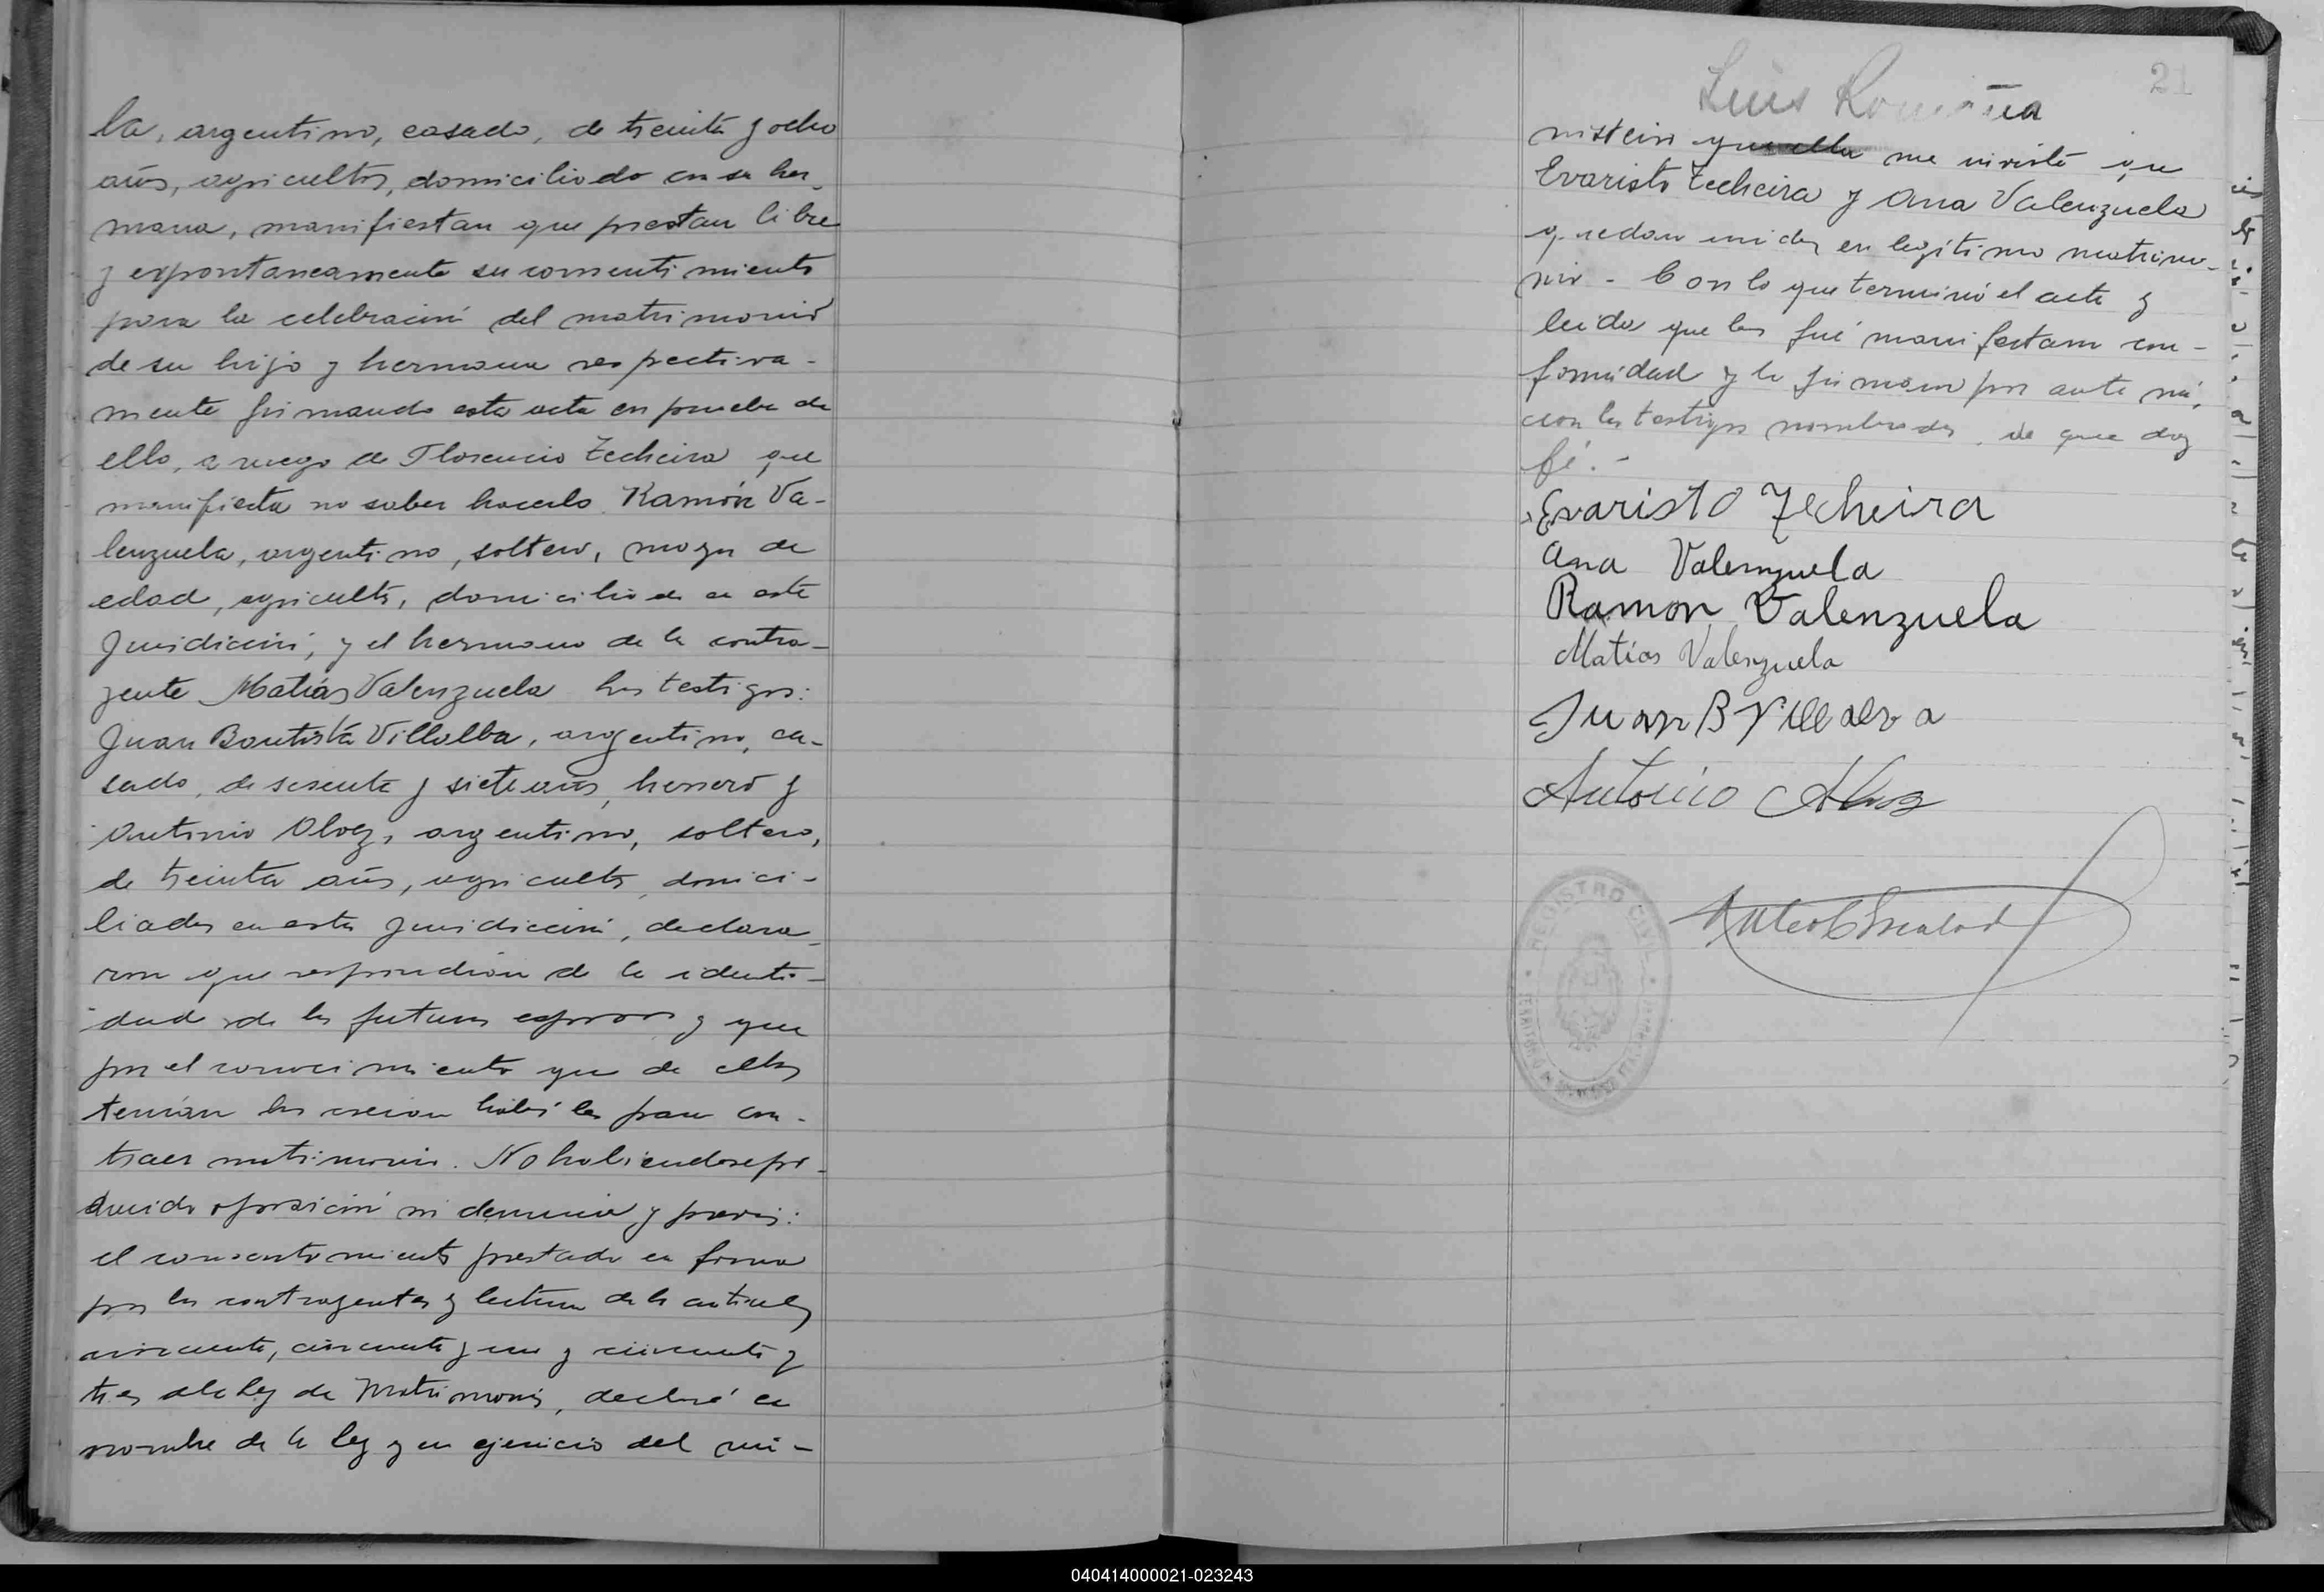 la, argentino, casado, de treinta y ocho
años, agricultor, domiciliado con su her-
mana, manifiestan que prestan libre
y expontaneamente su consentimiento
para la celebración del matrimonio
de su hijo y hermana respectiva-
mente firmando esta acta en prueba de
ello, a ruego de Florencio Techeira que
manifiesta no saber hacerlo Ramón Va-
lenzuela, argentino, soltero, mayor de
edad, agricultor, domiciliado en esta
Jurisdicción, y el hermano de la contra-
yente Matías Valenzuela los testigos:
Juan Bautista Villalba, argentino, ca-
sado, de sesenta y siete años, herrero y
Antonio Alvez, argentino, soltero,
de treinta años, agricultor, domici-
liados en esta Jurisdicción, declara-
ron que respondían de la identi-
dad de los futuros esposos y que
por el conocimiento que de ellos
tenían los creían hábiles para con-
traer matrimonio. No habiendose pro-
ducido oposición ni denuncia y previo:
el consentimiento prestado en forma
por los contrayentes y lectura de los articulos
cincuenta, cincuenta y uno y cincuenta y
tres de la ley de Matrimonio, declaré en
nombre de la ley y en ejercicio del mi-
21
Luis Romaña
nisterio que ella me inviste que
Evaristo Techeira y Ana Valenzuela
quedan unidos en legítimo matrimo-
nio - Con lo que terminó el acto y
leida que les fué manifestaron con-
formidad y la firman por ante mí,
con los testigos nombrados, de que doy
fé.-
Evaristo Techeira
Ana Valenzuela
Ramon Valenzuela
Matías Valenzuela
Juan B Villalva
Antonio Alvez
REGISTRO CIVIL
040414000021-023243